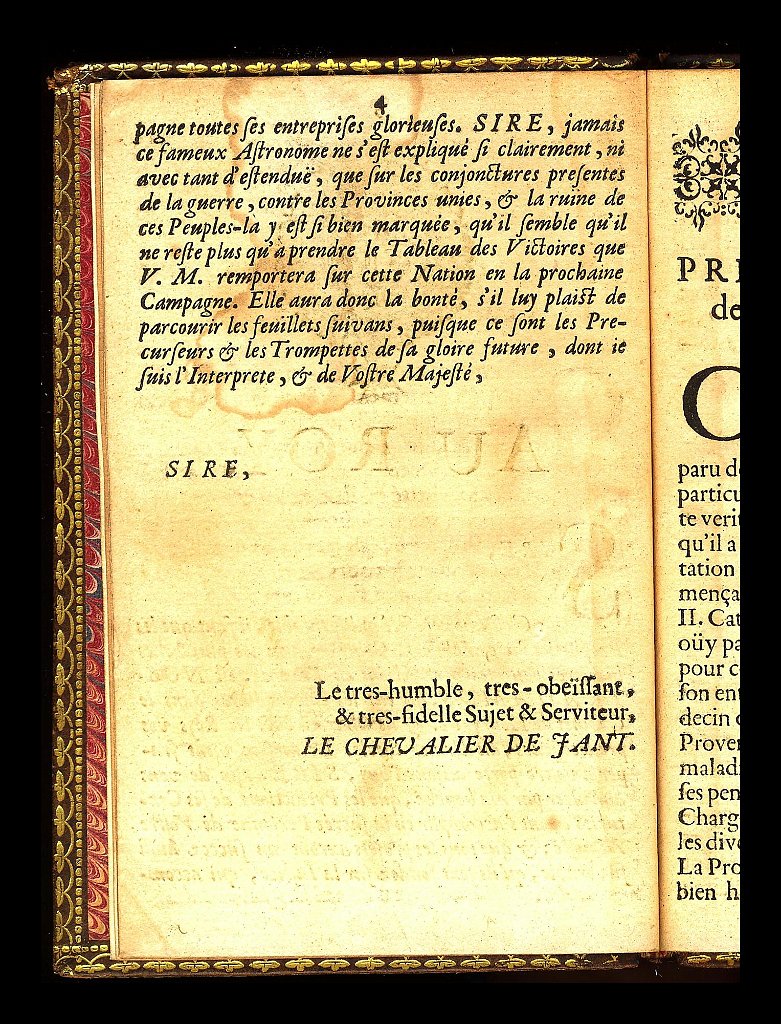 4
pagne toutes ſes entrepriſes glorieuſes. SIRE, jamais
ce fameux Aſtronome ne s'eſt expliqué ſi clairement, ni
avec tant d'eſtenduë, que ſur les conjonctures preſentes
de la guerre, contre les Provinces unies, & la ruine de
ces Peuples-là y eſt ſi bien marquée, qu'il ſemble qu'il
ne reſte plus qu'à prendre le Tableau des Victoires que
V. M. remportera ſur cette Nation en la prochaine
Campagne. Elle aura donc la bonté, s'il luy plaiſt de
parcourir les feuillets ſuivans, puiſque ce ſont les Pre-
curſeurs & les Trompettes de ſa gloire future, dont ie
ſuis l'Interprete, & de Voſtre Majeſté,
SIRE,
Le tres-humble, tres-obeïſſant,
& tres-fidelle Sujet & Serviteur,
LE CHEVALIER DE JANT.
PRE
de
C
paru de
particu
te verit
qu'il a
tation
mença
II. Cat
oüy pa
pour c
ſon ent
decin
Proven
malad
ſes pen
Charg
les dive
La Pro
bien h